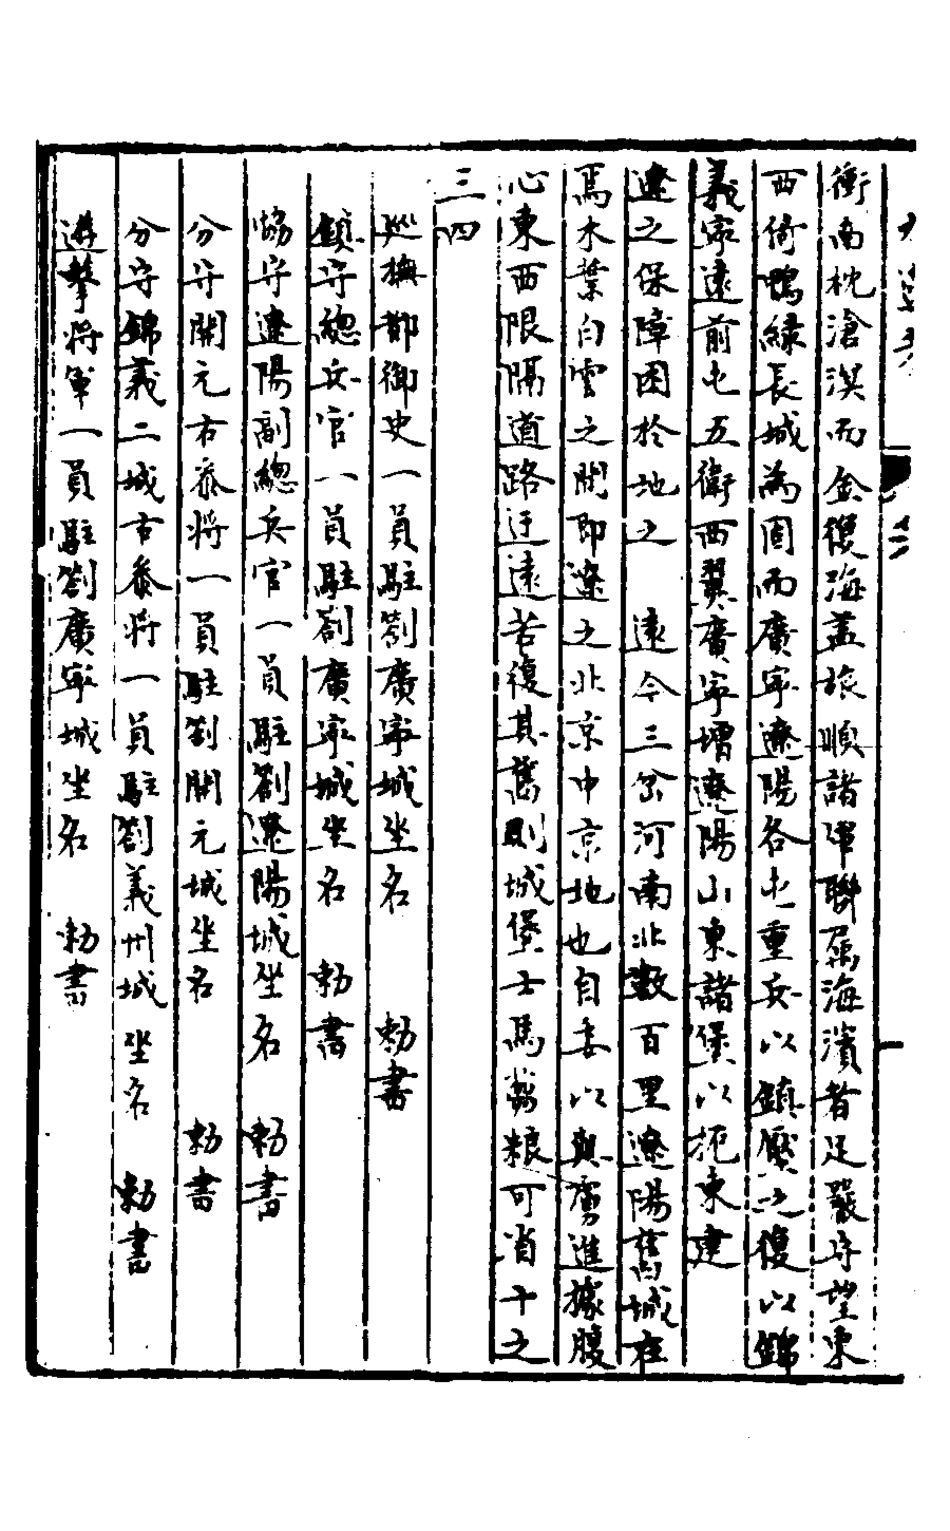 衝南枕滄溟而金復海蓋旅順諸軍聯屬海濱者足嚴守望東
西倚鴨緑長城為固而廣寧遼陽各屯重兵以鎮壓之復以錦
義寧遠前屯五衛西翼廣寧增遼陽山東諸堡以扼東建
遼之保障困於地之 遠今三岔河南北數百里遼陽舊城在
焉木葉白雲之間即遼之北京中京地也自委以與虜進據腹
心東西限隔道路迂遠若復其舊則城堡士馬芻粮可省十之
三四
巡撫都御史一員駐劄廣寧城坐名 勅書
鎮守總兵官一員駐劄廣寧城坐名 勅書
協守遼陽副總兵官一員駐劄遼陽城坐名 勅書
分守開元右叅將一員駐劄開元城坐名 勅書
分守錦義二城右叅將一員駐劄義州城 坐名 勅書
遊擊將軍一員駐劄廣寧城坐名 勅書